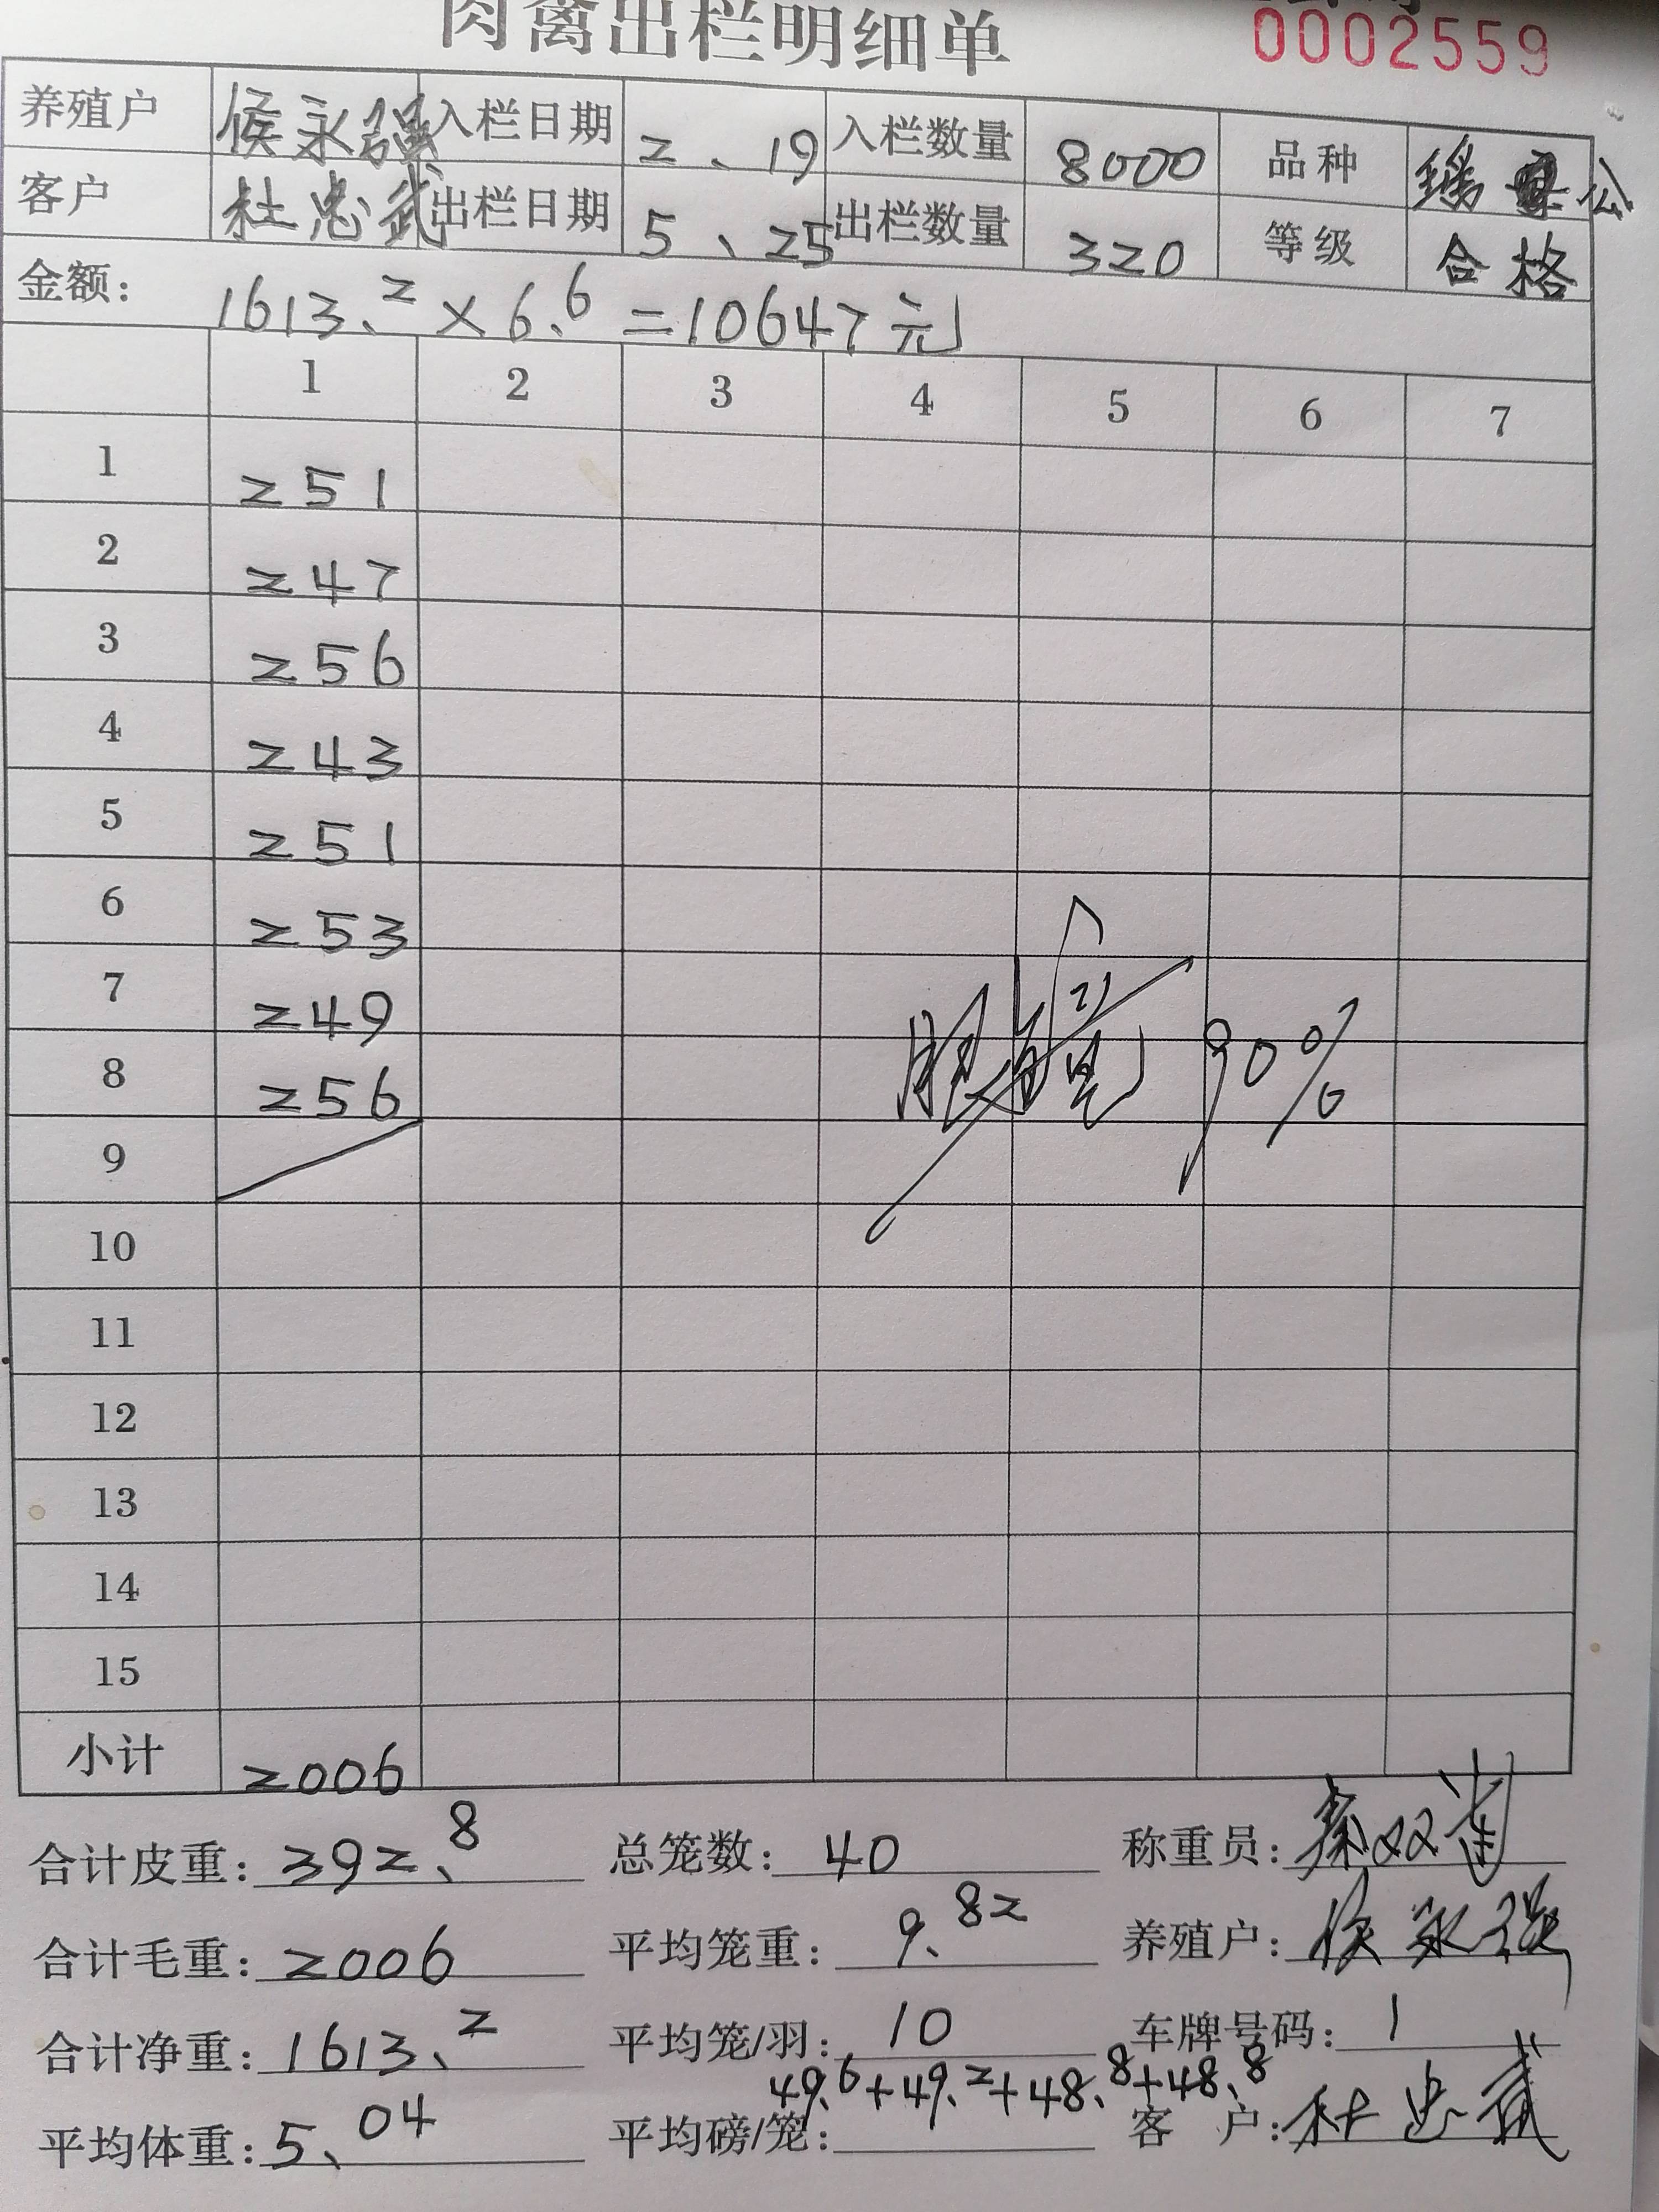 肉禽出栏明细单
0002559
养殖户 侯永强 入栏日期 2、19 入栏数量 8000 品种 公
客户 杜忠武 出栏日期 5、25 出栏数量 320 等级 合格
金额: 1613.2×6.6=10647元
1 2 3 4 5 6 7
1 251
2 247
3 256
4 243
5 251
6 253
7 249
8 256
9
10
11
12
13
14
15
90%
小计 2006
合计皮重: 392.8 总笼数: 40 称重员: 秦双
合计毛重: 2006 平均笼重: 9.82 养殖户: 侯永强
合计净重: 1613.2 平均笼/羽: 10 车牌号码: 1
49.6+49.2+48.8+48.8
平均体重: 5.04 平均磅/笼: 客户: 杜忠武